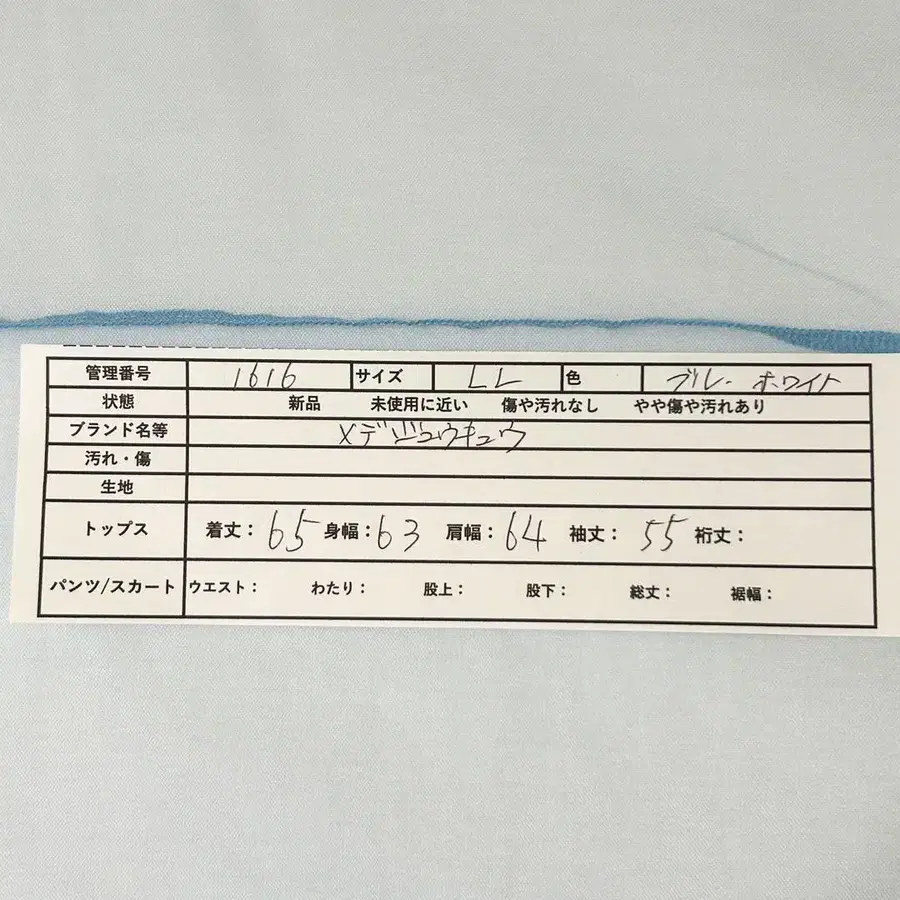 管理番号 1616 サイズ LL 色 ブルー ホワイト
状態 新品 未使用に近い 傷や汚れなし やや傷や汚れあり
ブランド名等
汚れ・傷
生地
トップス 着丈: 65 身幅:63 肩幅: 64 袖丈: 55 裄丈:
パンツ/スカート ウエスト: わたり: 股上: 股下: 総丈: 裾幅: